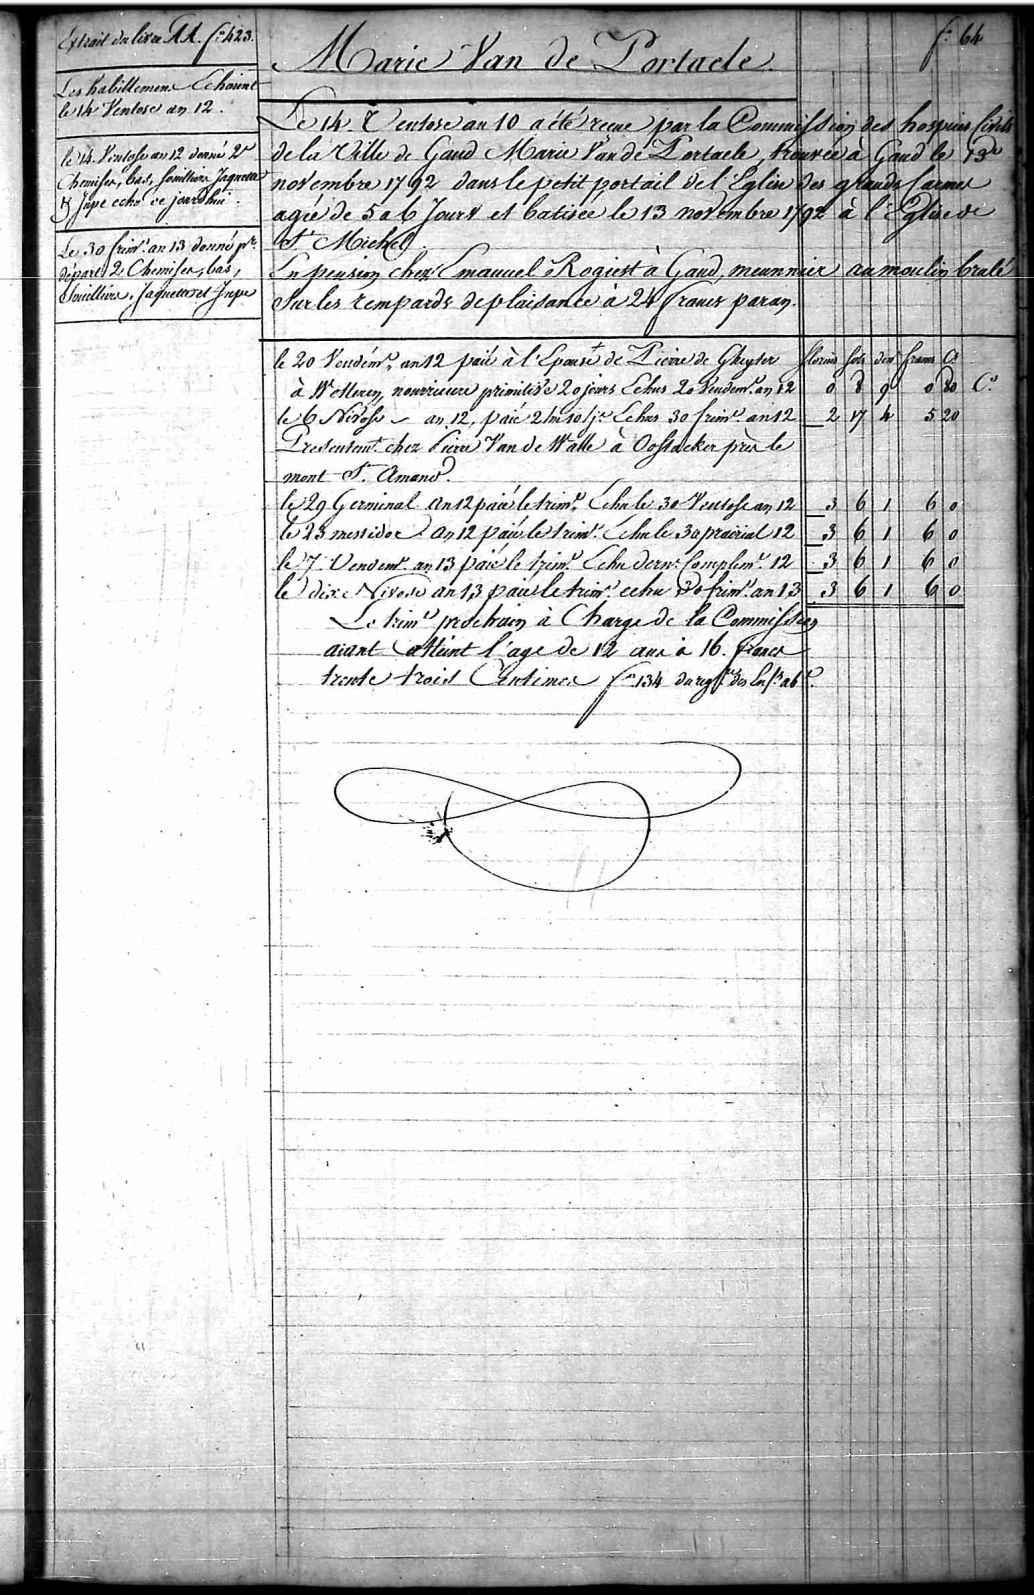 fo. 64
Extrait du livre AA. fo. 423.
Les habillemens Echoient
le 14 Ventose an 12.
le 14. Ventose an 12 donné 2
Chemises, bas, souilliers Jaquette
& Jupe echu ce jourdhui.
Le 30 frimre. an 13 donné pr.
départ 2 Chemises, bas,
Souilliers, Jaquette et Jupe
Marie Van de Portaele.
Le 14 Ventose an 10 a été recue par la Commission des hospices Civils
de la Ville de Gand Marie Van de Portaele, trouvée à Gand le 13e
novembre 1792 dans le petit portail de l'Eglise des grands Carmes
agée de 5 a 6 Jours et batisée le 13 novembre 1792 à l'Eglise de
St. Michel.
En pension chez Emanuel Rogiest à Gand, meunnier au moulin brulé
Sur les remparts de plaisance à 24 francs par an.
florins sols den francs Cs
le 20 Vendémre. an 12 paié à l'Epouse de Pierre de Gheyter
à nourriciere primitive 20 jours Echus 20 Vendemre. an 12 0 8 9 0 80 Cs.
le 6 Nivose an 12, paié 2 m 10 js. Echus 30 frimre. an 12 2 17 4 5 20
Presentemt. chez Pierre Van de Walle à Oostacker près le
mont St. Amand.
le 29 Germinal an 12 paié le trimre. Echu le 30 Ventose an 12 3 6 1 6 0
le 23 messidor an 12 paié le trimre. Echu le 30 prairial 12 3 6 1 6 0
le 7. Vendemre. an 13 paié le trimre. Echu dernr. Complemre. 12 3 6 1 6 0
le dix Nivose an 13 paié le trimre. echu 30 frimre. an 13 3 6 1 6 0
Le trimre prochain à Charge de la Commission
aiant atteint l'age de 12 ans à 16. francs
trente trois Centimes fo. 134 du regtre des Enfs. abs.